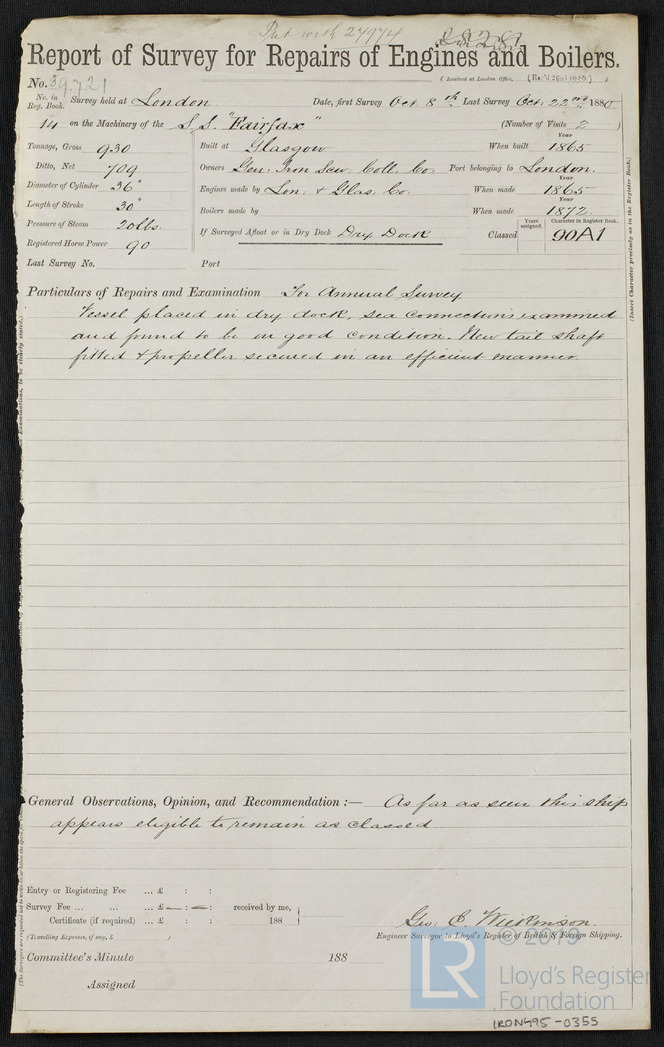 Put with 27974
Report of Survey for Repairs of Engines and Boilers.
No. 39721
(Received at London Office,
No. in Reg. Book. Survey held at London Date, first Survey Oct 8th Last Survey Oct. 22nd 1880
14 on the Machinery of the S.S. "Fairfax" (Number of Visits 2 )
Tonnage, Gross 930 Built at Glasgow When built Year 1865
Ditto, Net 709 Owners Gen. Iron Scw. Coll. Co. Port belonging to London.
Diameter of Cylinder 36" Engines made by Lon. & Glas. Co. When made Year 1865
Length of Stroke 30" Boilers made by When made Year 1872
Pressure of Steam 20lbs. If Surveyed Afloat or in Dry Dock Dry Dock Classed Years assigned. Character in Register Book. 90A1
Registered Horse Power 90
Last Survey No. Port
(Insert Character precisely as in the Register Book.)
Particulars of Repairs and Examination For Annual Survey
Vessel placed in dry dock, sea connections examined
and found to be in good condition. New tail shaft
fitted & propeller secured in an efficient manner.
General Observations, Opinion, and Recommendation :— As far as seen this ship
appears eligible to remain as classed
Entry or Registering Fee ... £ : :
Survey Fee ... ... ... £ — : — : received by me,
Certificate (if required) ... £ : : 188
(Travelling Expenses, if any, £
Geo. C. Wilkinson
Engineer Surveyor to Lloyd's Register of British & Foreign Shipping.
Committee's Minute 188
Assigned
© 2019
LR
Lloyd's Register
Foundation
IRON495-0355